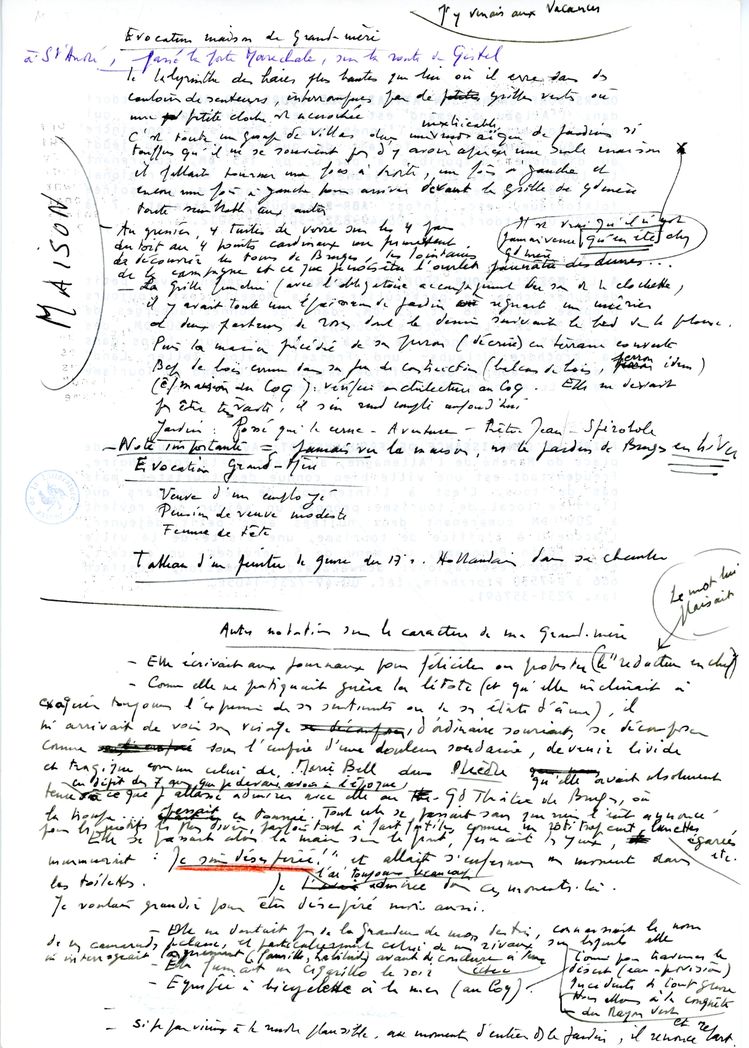 J'y venais aux vacances
Evocation maison de Grand-mère
à St André, passé la porte Maréchale, sur la route de Gistel
Le labyrinthe des haies plus hautes que lui où il erre dans des
couloirs de senteurs interrompus par de petites grilles vertes où
une petite cloche est accrochée
C'est toute un groupe de villas dans inextricable de jardins si
touffus qu'il ne se souvient pas d'y avoir aperçu une seule maison
il fallait tourner une fois à droite, une fois à gauche et
encore une fois à gauche pour arriver devant la grille de Gdmère
toute semblable aux autres
MAISON
Il est vrai qu'il n'est
jamais venu qu'en été chez
Gdmère
Au grenier, 4 tuiles de verre sur les 4 pans
du toit aux 4 points cardinaux me permettent
de découvrir les tours de Bruges, les lointains
de la campagne et ce que l'ourlet jaunâtre des dunes...
La grille franchie (avec l'obligatoire accompagnement du son de la clochette,
il y avait toute une épaisseur de jardin régnant un
et deux parterres de roses dont le dessin suivait le bord de la pelouse.
Puis la maison précédée de son perron (décrire) en terrasse couverte
de bois comme dans sa construction (balcon de bois, perron idem)
(maison du Coq) : vérifier architecture au Coq. Elle ne devait
pas être très vaste, il s'en rend compte aujourd'hui
Jardin : Fossé qui le cerne - Aventure - Prêtre Jean - Spirobole
Note importante = Jamais vu la maison, ni le jardin de Bruges en hiver
Evocation Grand-Mère
Veuve d'un employé
Pension de veuve modeste
Femme de tête
Tableau d'un peintre de genre du 17e s. Hollandais dans sa chambre
Le mot lui
plaisait
Autres notations sur le caractère de ma Grand-mère
- Elle écrivait aux journaux pour féliciter ou protester (le "rédacteur en chef")
- Comme elle ne pratiquait guère la litote (et qu'elle inclinait à
exagérer toujours l'expression de ses sentiments ou de ses états d'âme), il
m'arrivait de voir son visage d'ordinaire souriant, se décomposer
comme sous l'empire d'une douleur soudaine, devenir livide
et tragique comme celui de Marie Bell dans Phèdre qu'elle avait absolument
en dépit des 7 ans que je devais avoir à l'époque,
tenu à ce que j'allasse admirer avec elle au Gd Théâtre de Bruges, où
la troupe passait en tournée. Tout cela se passait sans que rien l'eût annoncé
pour les motifs les plus divers, parfois tout à fait futiles comme un rôti trop cuit, lunettes
égarées
etc.
Elle se passait alors la main sur le front, fermait les yeux,
murmurait : "Je suis désespérée!" et allait s'enfermer un moment dans
les toilettes. Je l'ai toujours beaucoup admirée dans ces moments-là.
Je voulais grandir pour être désespéré moi aussi.
- Elle ne doutait pas de la Grandeur de mon destin, connaissait le nom
de mes camarades de classe, et particulièrement celui de mes rivaux sur lesquels elle
m'interrogeait longuement (famille, habitudes) avant de conclure à leur
- Elle fumait un cigarillo le soir
- Equipée à bicyclette à la mer (au Coq).
Comme pour traverser le
désert (eau-provisions)
Incidents de toute
Nous allions à la conquête
du Rayon Vert
et retard.
- Si je parviens à le rendre plausible, au moment d'entrer ds le jardin, il renonce et repart.